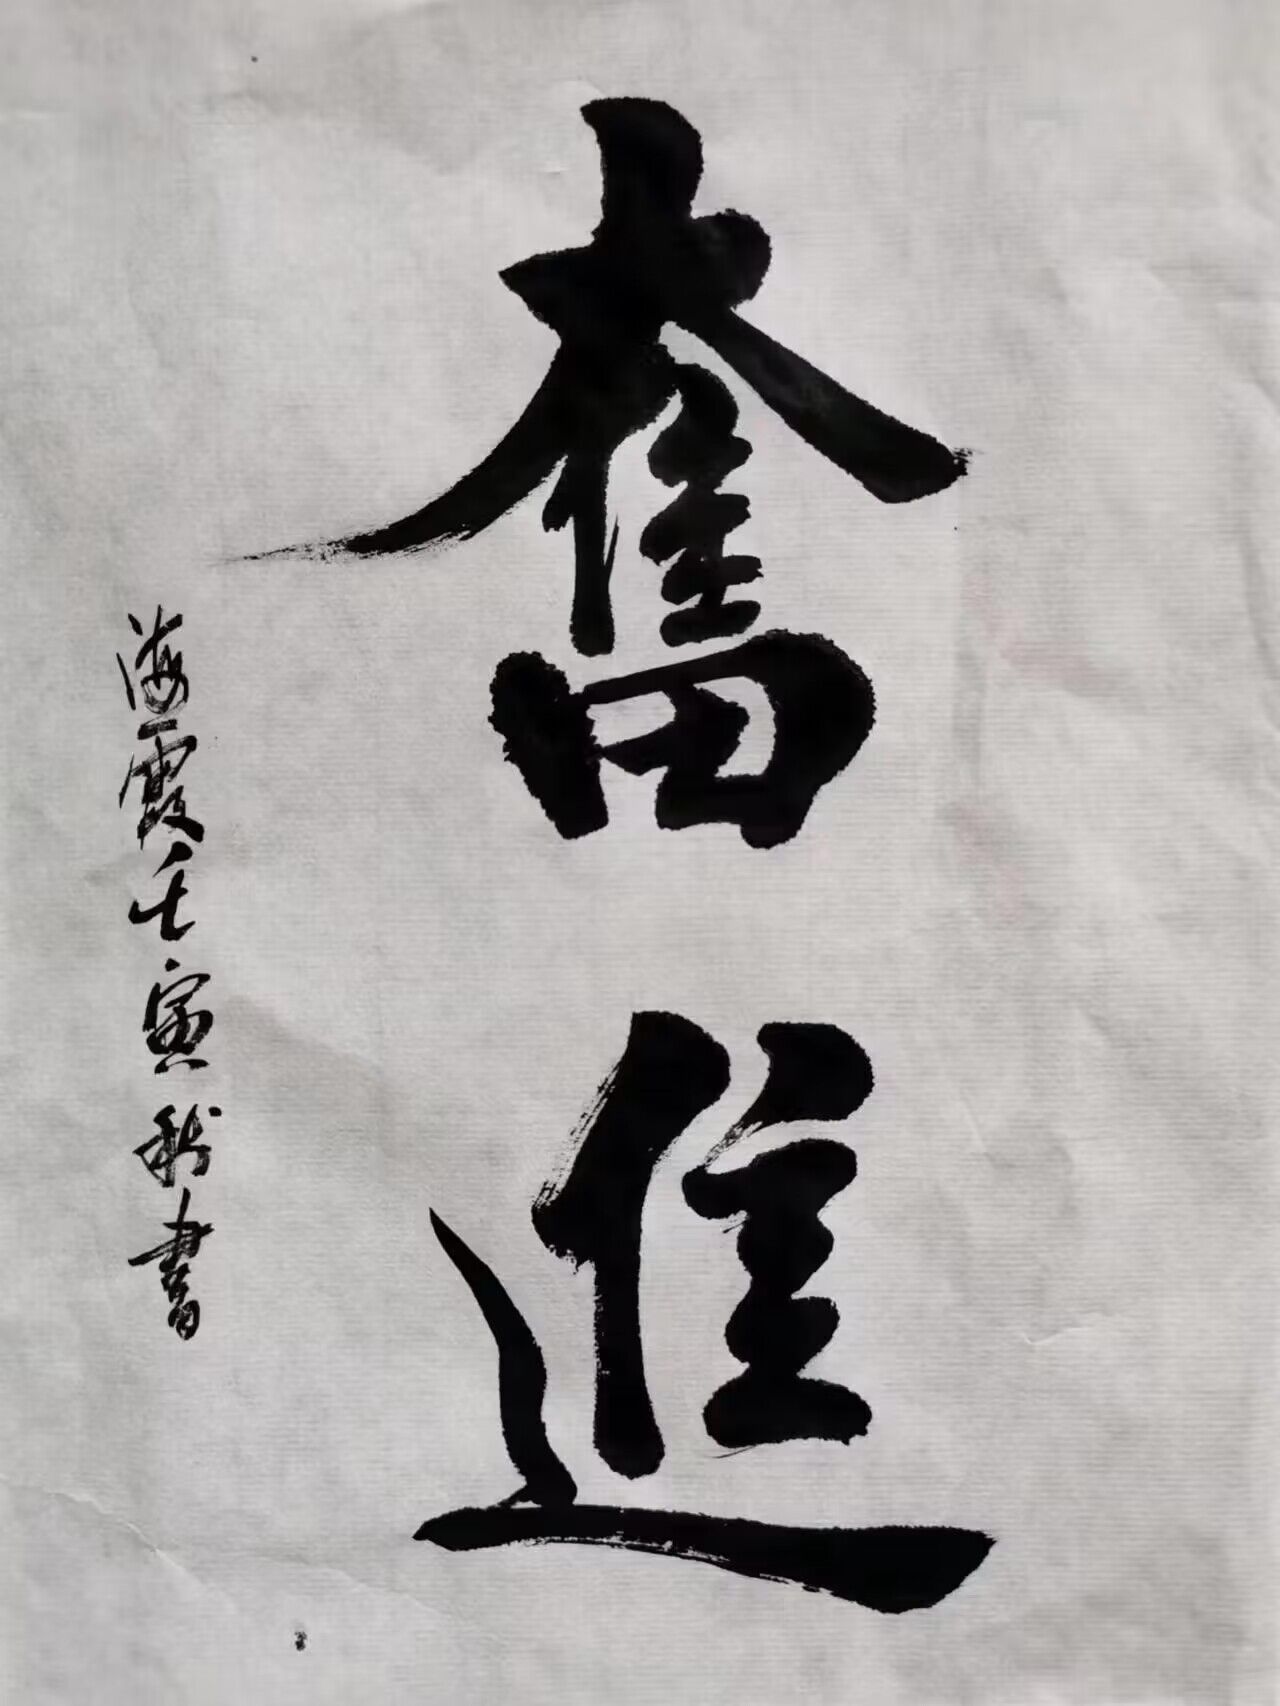 奮進
海霞壬寅秋書